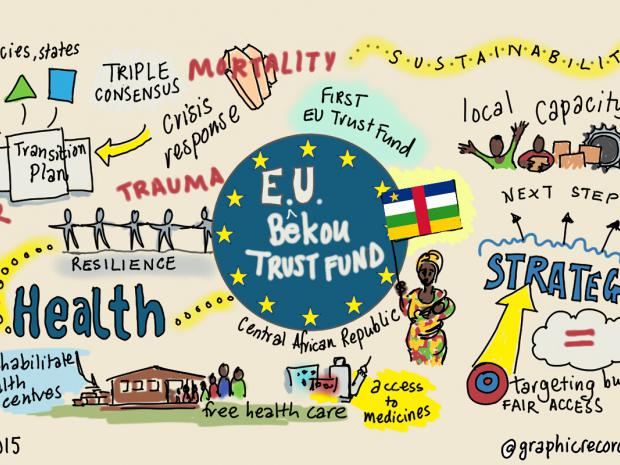 cies, states
TRIPLE
CONSENSUS
MORTALITY
SUSTAINABILIT
crisis
response
FIRST
EU Trust Fund
local capacity
Transition
Plan
TRAUMA
R
E.U.
Bêkou
TRUST FUND
NEXT STEP
RESILIENCE
STRATEG
Health
Central African Republic
habilitate
alth
centives
free health care
access
to
medicines
targeting bu
FAIR ACCESS
2015
@graphicrecor